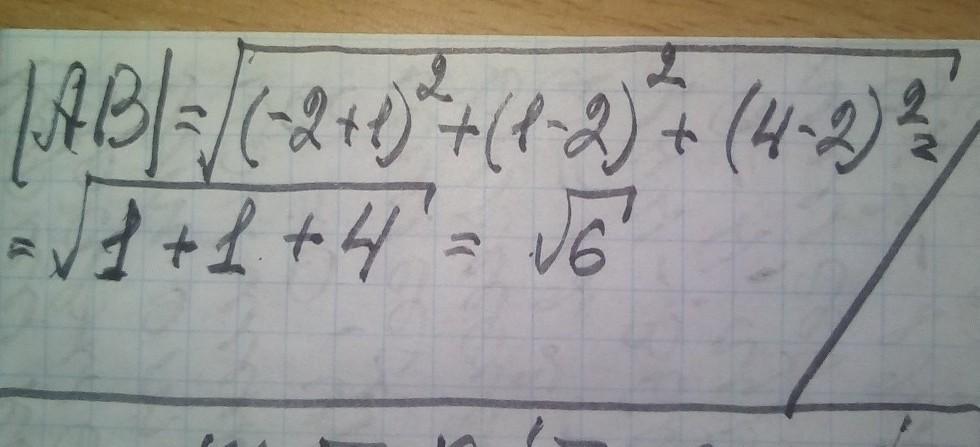 |AB|=√(-2+1)²+(1-2)²+(4-2)²=
=√1+1+4=√6